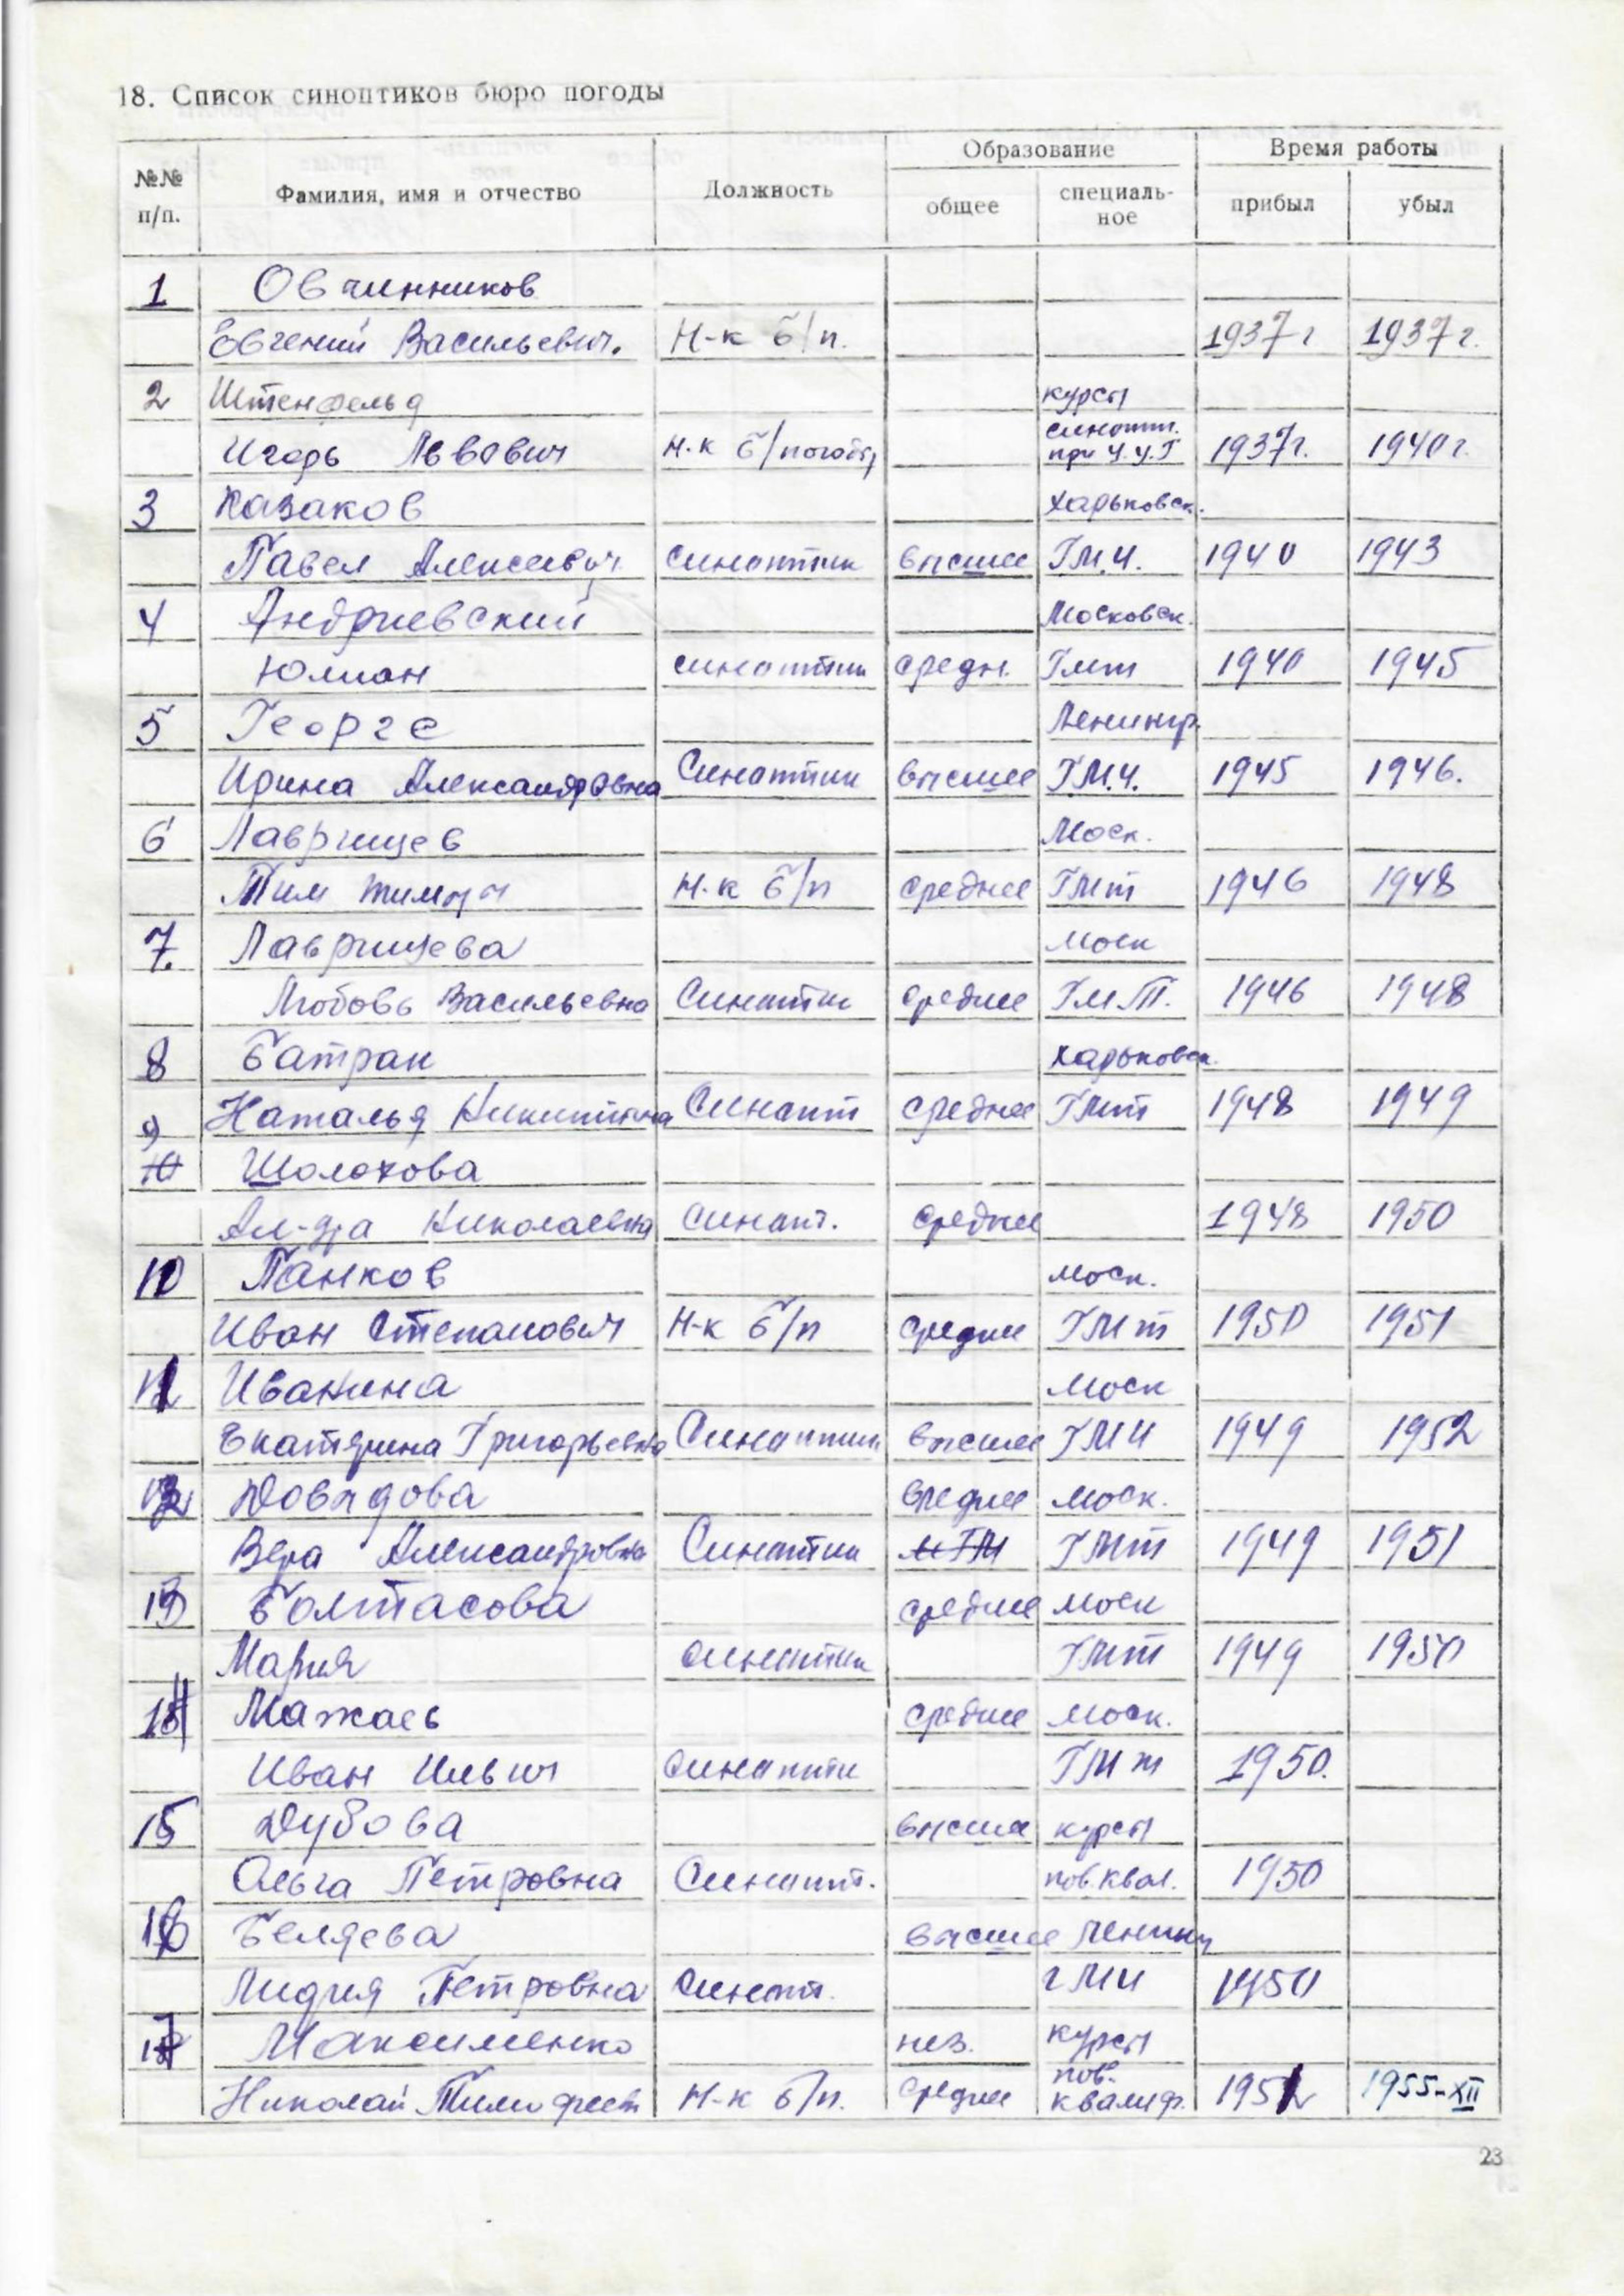 18. Список синоптиков бюро погоды
№№ п/п. Фамилия, имя и отчество Должность Образование Время работы
общее специаль-ное прибыл убыл
1 Овчинников
Евгений Васильевич. Н-к б/п. 1937 г 1937 г.
2 Штенфельд курсы
Игорь Львович Н-к б/погоды синопт. при Ц.У.Г 1937г. 1940 г.
3 Казаков Харьковск.
Павел Алексеевич синоптик высшее ГМИ. 1940 1943
4 Андриевский Московск.
Юлиан синоптик средн. Гмт 1940 1945
5 Георге Ленингр.
Ирина Александровна Синоптик высшее ГМИ. 1945 1946.
6 Лаврищев Моск.
Тим Н-к б/п среднее ГМт 1946 1948
7. Лаврищева моск
Любовь Васильевна Синоптик среднее ГМТ. 1946 1948
8 Батрак Харьковск.
Наталья Никитична Синопт среднее ГМт 1948 1949
9 10 Шолохова
Ал-дра Николаевна Синопт. среднее 1948 1950
10 Панков моск.
Иван Степанович Н-к б/п средне ГМт 1950 1951
11 Иванина моск
Екатерина Григорьевна Синоптик высшее ГМИ 1949 1952
12 Довыдова среднее моск.
Вера Александровна Синоптик ГМт 1949 1951
13 Болтасова среднее моск
Мария синоптик ГМт 1949 1950
14 Мажаев средне моск.
Иван Ильич Синоптик ГМт 1950.
15 Дубова высшее курсы
Ольга Петровна Синопт. пов.квал. 1950
16 Беляева высшее Ленинг
Лидия Петровна Синопт. гМИ 1950
17 Максименко нез. курсы
Николай Н-к б/п. средне пов. квалиф. 1951 1955-XII
23